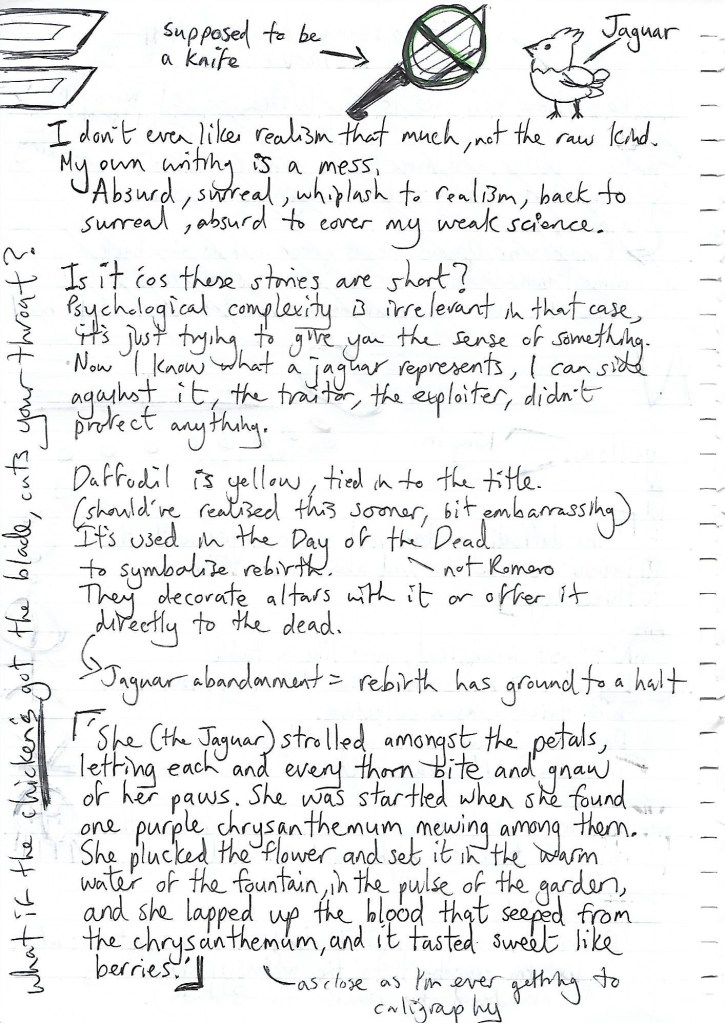 supposed to be
a knife
Jaguar
I don't even like realism that much, not the raw kind.
My own writing is a mess.
Absurd, surreal, whiplash to realism, back to
surreal, absurd to cover my weak science.
Is it cos these stories are short?
Psychological complexity is irrelevant in that case,
it's just trying to give you the sense of something.
Now I know what a jaguar represents, I can side
against it, the traitor, the exploiter, didn't
protect anything.
Daffodil is yellow, tied in to the title.
(should've realised this sooner, bit embarrassing)
It's used in the Day of the Dead
not Romero
to symbolise rebirth.
They decorate altars with it or offer it
directly to the dead.
Jaguar abandonment = rebirth has ground to a halt
"She (the Jaguar) strolled amongst the petals,
letting each and every thorn bite and gnaw
of her paws. She was startled when she found
one purple chrysanthemum mewing among them.
She plucked the flower and set it in the warm
water of the fountain, in the pulse of the garden,
and she lapped up the blood that seeped from
the chrysanthemum, and it tasted sweet like
berries."
as close as I'm ever getting to
caligraphy
what if the chicken's got the blade, cuts your throat?